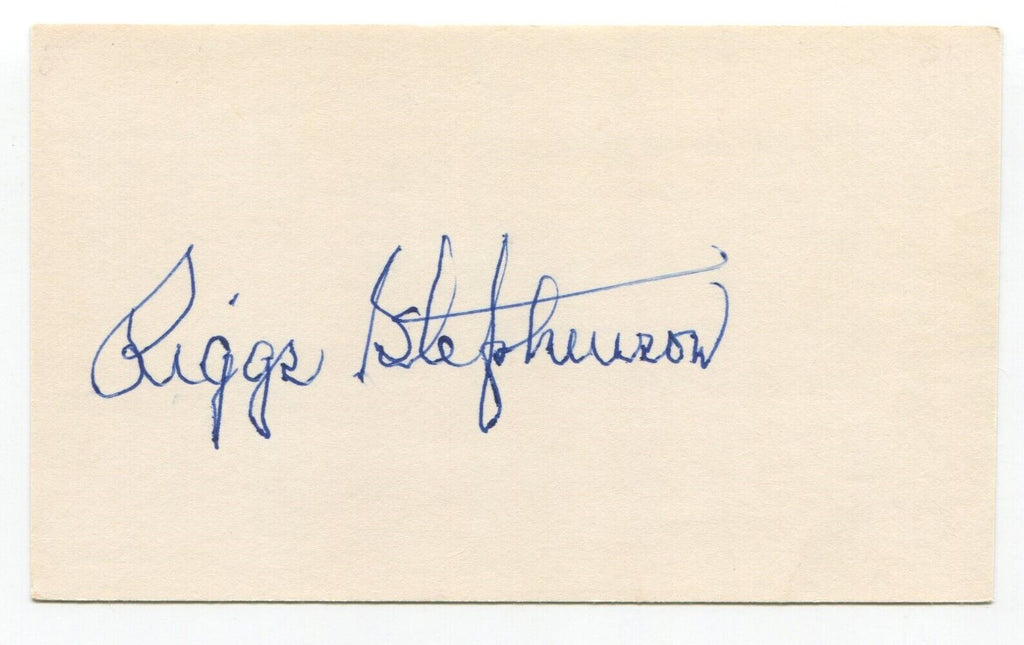 Riggs Stephenson